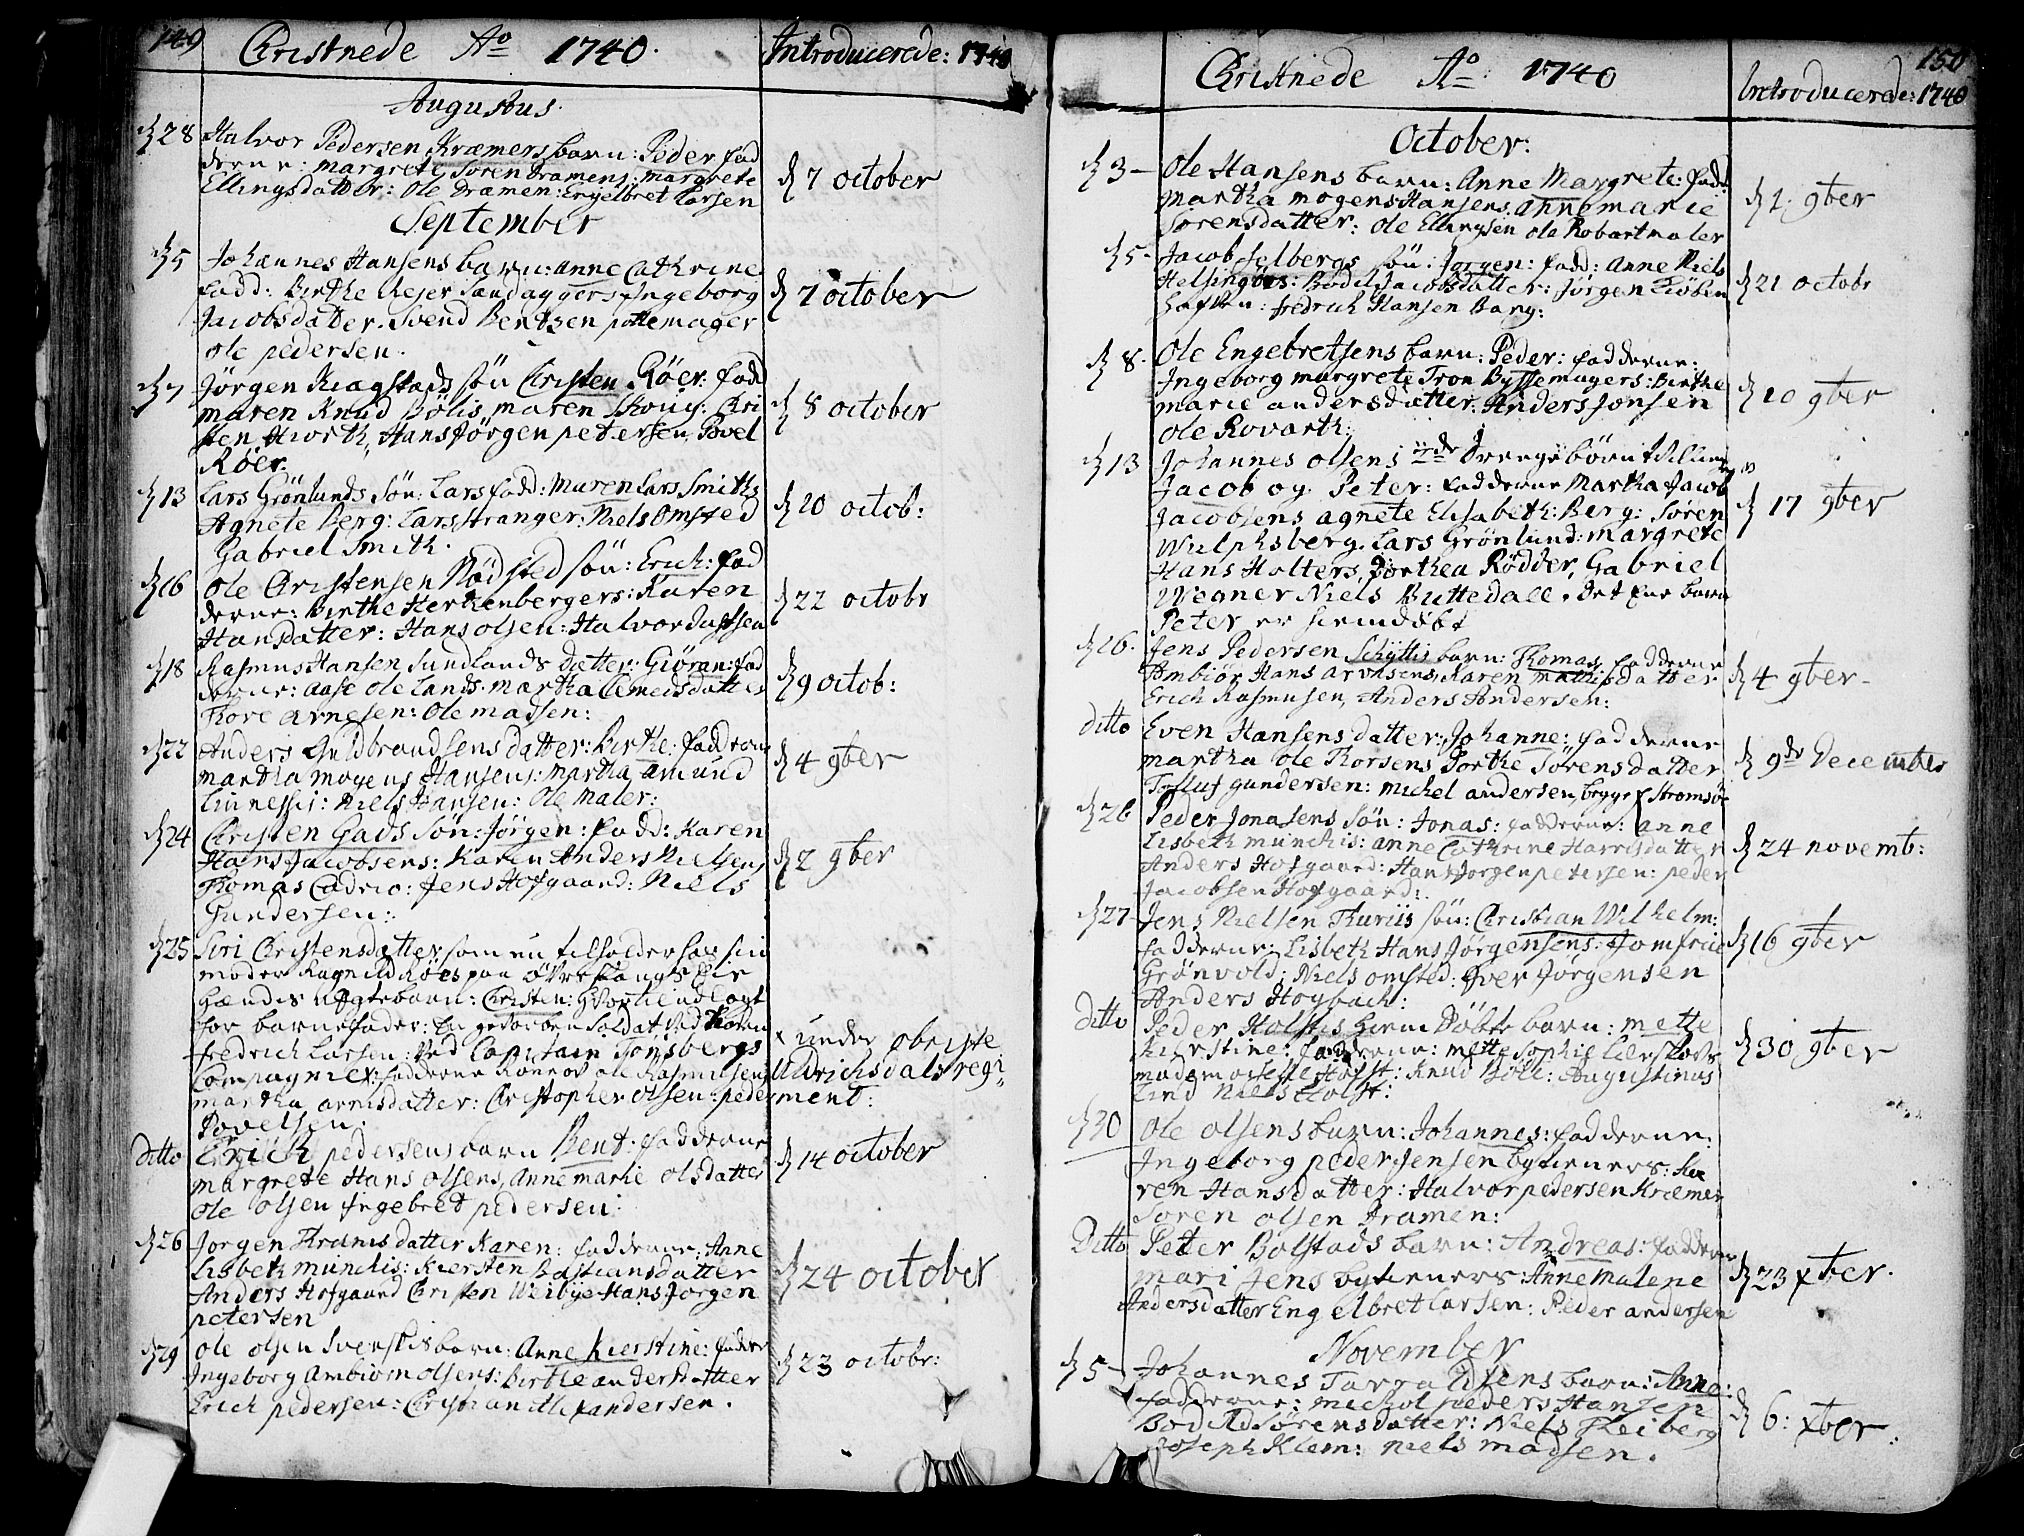 149 Christnede Ao 1740. Introducerede: 1740
Augustus.
d 28 Halvor Pedersen Kræmers barn: Peder fad
derne: margrete Søren Dramens: margrete
Ellingsdatter: Ole Dramen: Engelbret Larsen
d 7 october
September
d 5 Johannes Hansens barn: anne Cathrine
fadd: Birthe Rejer Ingeborg
Jacobsdatter. Svend Bentsen pottemager
ole pedersen.
d 7 october
d 7 Jørgen Ragstads søn Christen Röer: fadd
maren Knud Bölis, maren Schouy: Chri
sten Hiorth, Hans Jörgen petersen, Povel
Röer.
d 8 october
d 13 Lars Grönlunds Sön: Lars fadd: Maren Lars Smiths
Agnete Berg: Lars stranger: Niels Omsted
Gabriel Smith.
d 20 octob:
d 16 Ole Christensen Rödsted sön: Erich: fad
derne: Birthe Herkenbergers: Karen
Hansdatter: Hans olsen: Halvor Justsen
d 22 octobr
d 18 Rasmus Hansen Sundlands datter: Giöran: fad
derne: aase ole Lands. martha Clemedsdatter
Thore arnesen: Ole madsen:
d 9 octob:
d 22 Anders Guldbrandsens datter: Birthe: fadderne
martha mogens Hansens: martha amund
Linnessis: Niels Hansen: Ole maler:
d 4 9ber
d 24 Christen Gads Sön: Jörgen: fadd: Karen
Hans Jacobsens: Karen Anders Nielsens
Thomas Cadrio: Jens Hofgaard: Niels
Gundersen:
d 2 9ber
d 25 Siri Christensdatter som nu tilholder hos sin
moder Ragnild Röes paa Øvre
hendes uægte barn: Christen: udlagt
for barnefader: En geworben Soldat ved
fredrich Larsen: ved Capitain Tönsbergs
Compagnie x: fadderne Ronnov ole Rasmusens
martha arnisdatter: Christopher olsen: peder
Povelsen.
x under obriste
Uldrichsdals regi
ment:
ditto Erich pedersens barn Bent: fadderne
margrete Hans olsens, Anne marie olsdatter
ole olsen Ingebret pedersen:
d 14 october
d 26 Jorgen Thranis datter Karen: fadderne: Anne
Lisbeth munchis: Kiersten Bastiansdatter
Anders Hofgaard Christen Weibye Hans Jorgen
petersen
d 24 october
d 29 ole olsen Svenskis barn: Anne Kierstine: fadder
Ingeborg Ambiörn olsens: Birthe andersdatter
Erich pedersen: Christian Alexandersen.
d 23 octobr:
Christnede Ao 1740 Introducerede: 1740 150
October:
d 3 Ole Hansens barn: Anne Margrete: fadd:
Martha mogens Hansens. anne marie
Sorensdatter: ole Ellingsen ole Robart maler
d 2. 9ber
d 5 Jacob Selbergs sön: Jorgen: fadd: Anne Niels
Helsingörs: Bodel Jacobsdatter: Jörgen Kiöben
hafn: fredrich Hansen Bang:
d 21 octobr
d 8. Ole Engebretsens barn: Peder: fadderne:
Ingeborg margrete Tron Byssemagers: Birthe
marie andersdatter: Anders Jonsen
ole Rovarth:
d 10 9ber
d 13 Johannes olsens drengebörn
Jacob og Peter: fadderne Martha Jacob
Jacobsens agnete Elisabeth: Berg: Sören
Wulphsberg. Lars Grönlund: Margrete
Hans Holters, Dorthea Rödder, Gabriel
Wegner Niels Buttedall. Det Ene barn
Peter er hiemdöbt
d 17 9ber
d 16. Jens Pedersen Schyttis barn: Thomas, fadderne
Ambiör Hans Karen Mathisdatter
Erich Rasmusen, Anders Andersen:
d 4 9ber
ditto Even Hansens datter: Johanne: fadderne
martha ole Thorsens Dorthe Sörensdatter
Tolluf gundersen: michel andersen begge Strømsöe
d 9de December
d 26 Peder Jonasens sön: Jonas: fadderne: anne
Lisbeth munchis: anne Cathrine Harrisdatter
Anders Hofgaard: Hans Jorgen petersen: peder
Jacobsen Hofgaard:
d 24 novemb:
d 27 Jens Nielsen Thuriis sön: Christian Wilhelm:
fadderne: Lisbeth Hans Jörgensens: Jomfrue
Grönvold: Niels omsted: Iver Jörgensen
Anders Hoybach:
d 16 9ber
Ditto Peder Holstis hiem Döbte barn: mette
Kierstine: fadderne: mette Sophie
mademoiselle Holst: Knud Böll: Augustinus
Lind Niels Holst:
d 30 9ber
d 30 Ole olsens barn: Johannes: fadderne:
Ingeborg peder Jensen bytieners: Ka
ren Hansdatter: Halvor pedersen Kræmer
Soren olsen Dramen:
Ditto Petter Bolstads barn: Andreas: faddern
mari Jens bytieners: Anne Malene
Andersdatter Engelbret Larsen: Peder andersen
d 23 xber.
November
d 5 Johannes Tarraldsens barn: Anne:
fadderne: michel peders Hansen
Bodild Sörensdatter: Niels Fleiberg
Joseph Klem: Niels madsen.
d 6: xber.